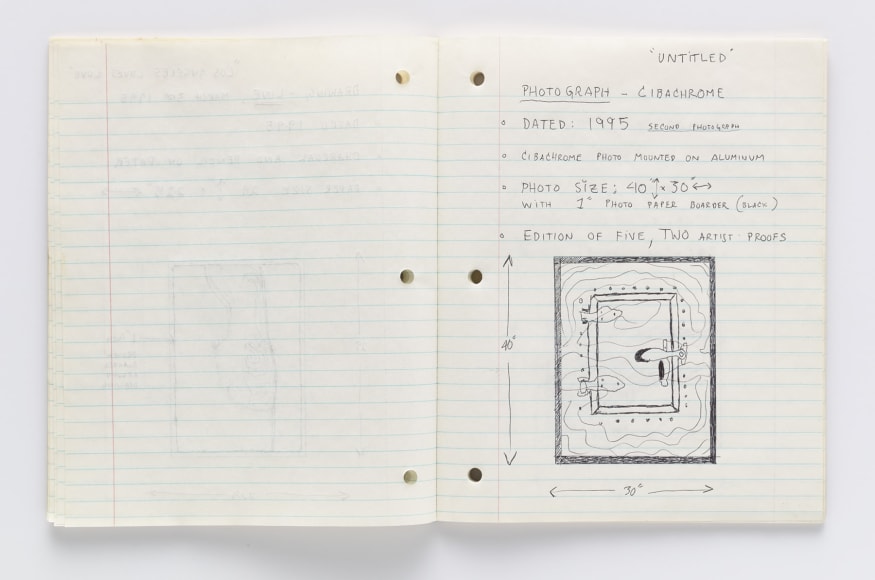 "UNTITLED"
PHOTOGRAPH - CIBACHROME
DATED: 1995 SECOND PHOTOGRAPH
CIBACHROME PHOTO MOUNTED ON ALUMINUM
PHOTO SIZE: 40"↕ x 30"↔
WITH 1" PHOTO PAPER BOARDER (BLACK)
EDITION OF FIVE, TWO ARTIST PROOFS
40"
30"